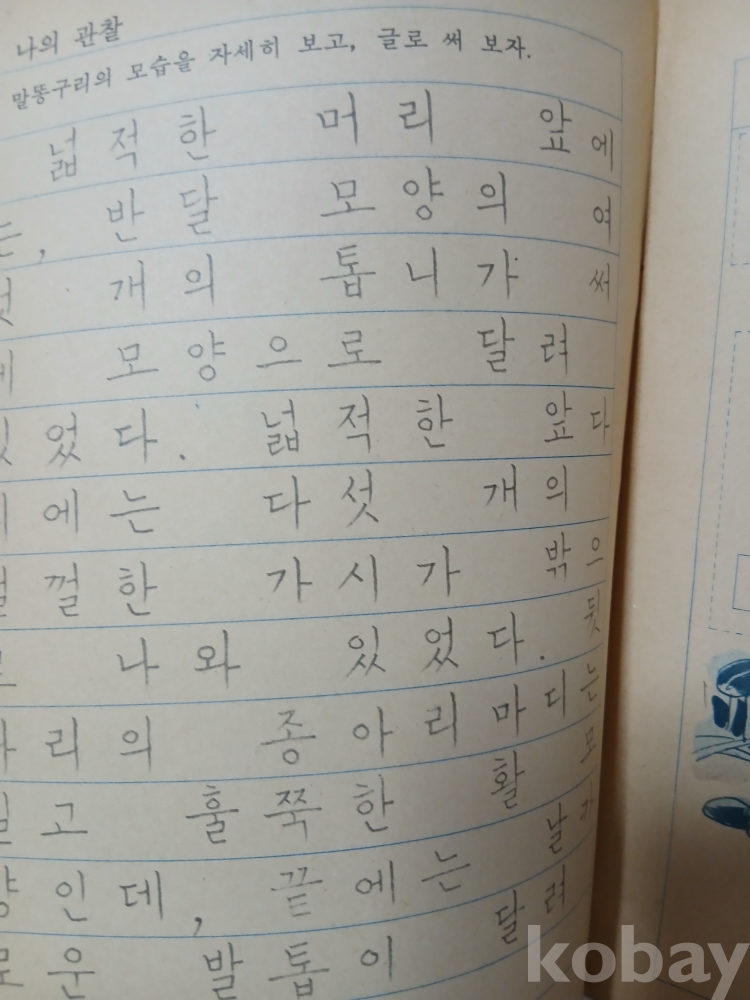 나의 관찰
말똥구리의 모습을 자세히 보고, 글로 써 보자.
넓적한 머리 앞에
는, 반달 모양의 여
개의 톱니가 써
모양으로 달려
있었다. 넓적한 앞다
에는 다섯 개의
껄한 가시가 밖으
나와 있었다. 뒷
리의 종아리마디는
고 훌쭉한 활 모
양인데, 끝에는 날카
로운 발톱이 달려
kobay